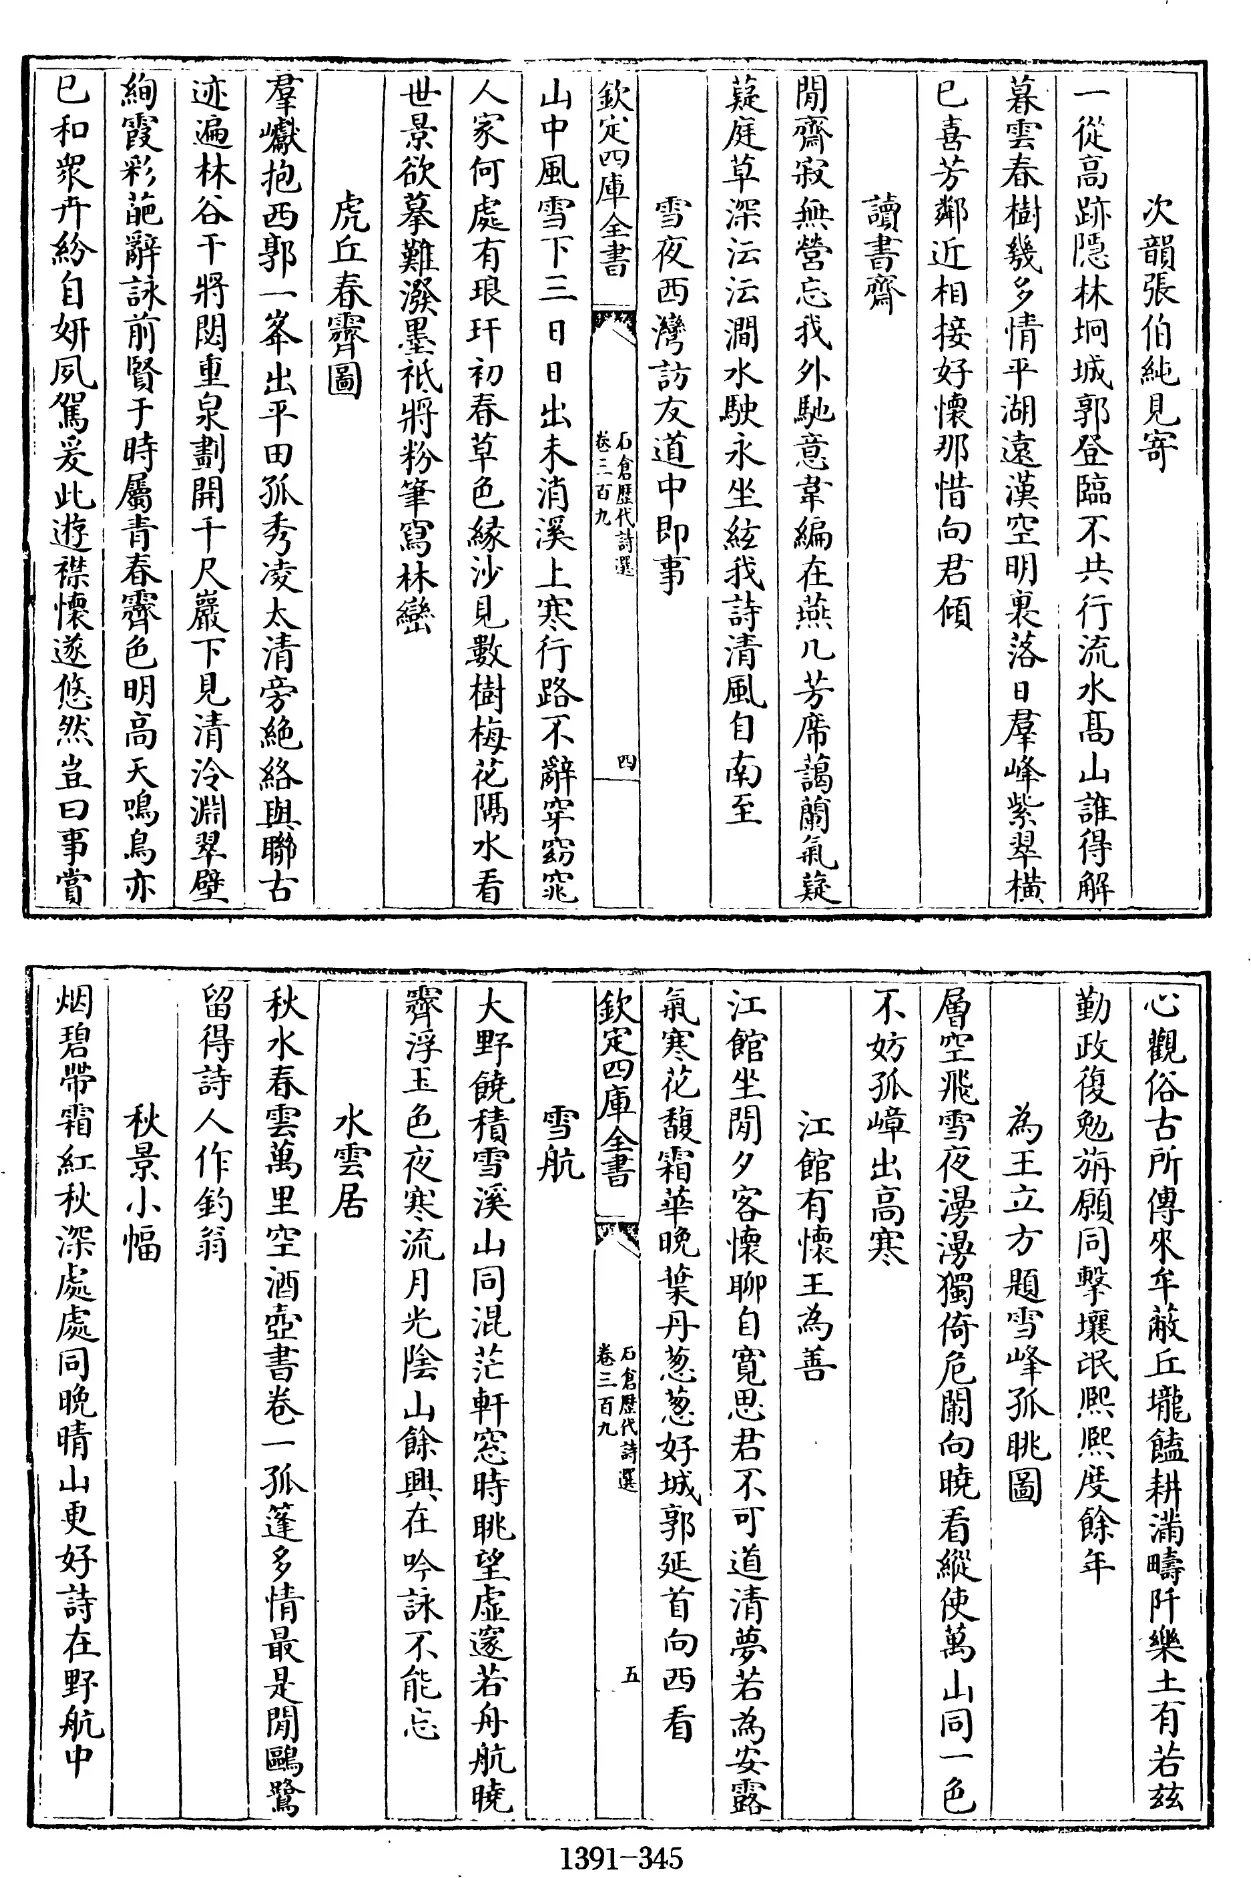 次韻張伯純見寄
一從高跡隠林坰城郭登臨不共行流水髙山誰得解
暮雲春樹幾多情平湖遠漢空明裏落日羣峰紫翠横
已喜芳鄰近相接好懷那惜向君傾
讀書齋
閒齋寂無營忘我外馳意韋編在燕几芳席藹蘭氣蕤
蕤庭草深沄沄澗水駛永坐絃我詩清風自南至
雪夜西灣訪友道中即事
欽定四庫全書
石倉歴代詩選
卷三百九
四
山中風雪下三日日出未消溪上寒行路不辭穿窈窕
人家何處有琅玕初春草色緣沙見數樹梅花隔水看
世景欲摹難潑墨祇將粉筆寫林巒
虎丘春霽圖
羣巘抱西郭一峯出平田孤秀凌太清旁絶絡與聯古
迹遍林谷干將閟重泉劃開千尺巖下見清泠淵翠壁
絢霞彩葩辭詠前賢于時屬青春霽色明高天鳴鳥亦
已和衆卉紛自妍夙駕爰此遊襟懷遂悠然豈曰事賞
心觀俗古所傳來牟蔽丘壠饁耕滿疇阡樂土有若兹
勤政復勉旃願同擊壤氓熙熙度餘年
為王立方題雪峰孤眺圖
層空飛雪夜湯湯獨倚危闌向曉看縱使萬山同一色
不妨孤嶂出高寒
江館有懷王為善
江館坐閒夕客懷聊自寬思君不可道清夢若為安露
氣寒花馥霜華晚葉丹葱葱好城郭延首向西看
欽定四庫全書
石倉歴代詩選
卷三百九
五
雪航
大野饒積雪溪山同混茫軒窓時眺望虚邃若舟航曉
霽浮玉色夜寒流月光陰山餘興在吟詠不能忘
水雲居
秋水春雲萬里空酒壺書卷一孤篷多情最是閒鷗鷺
留得詩人作釣翁
秋景小幅
烟碧帶霜紅秋深處處同晚晴山更好詩在野航中
1391-345